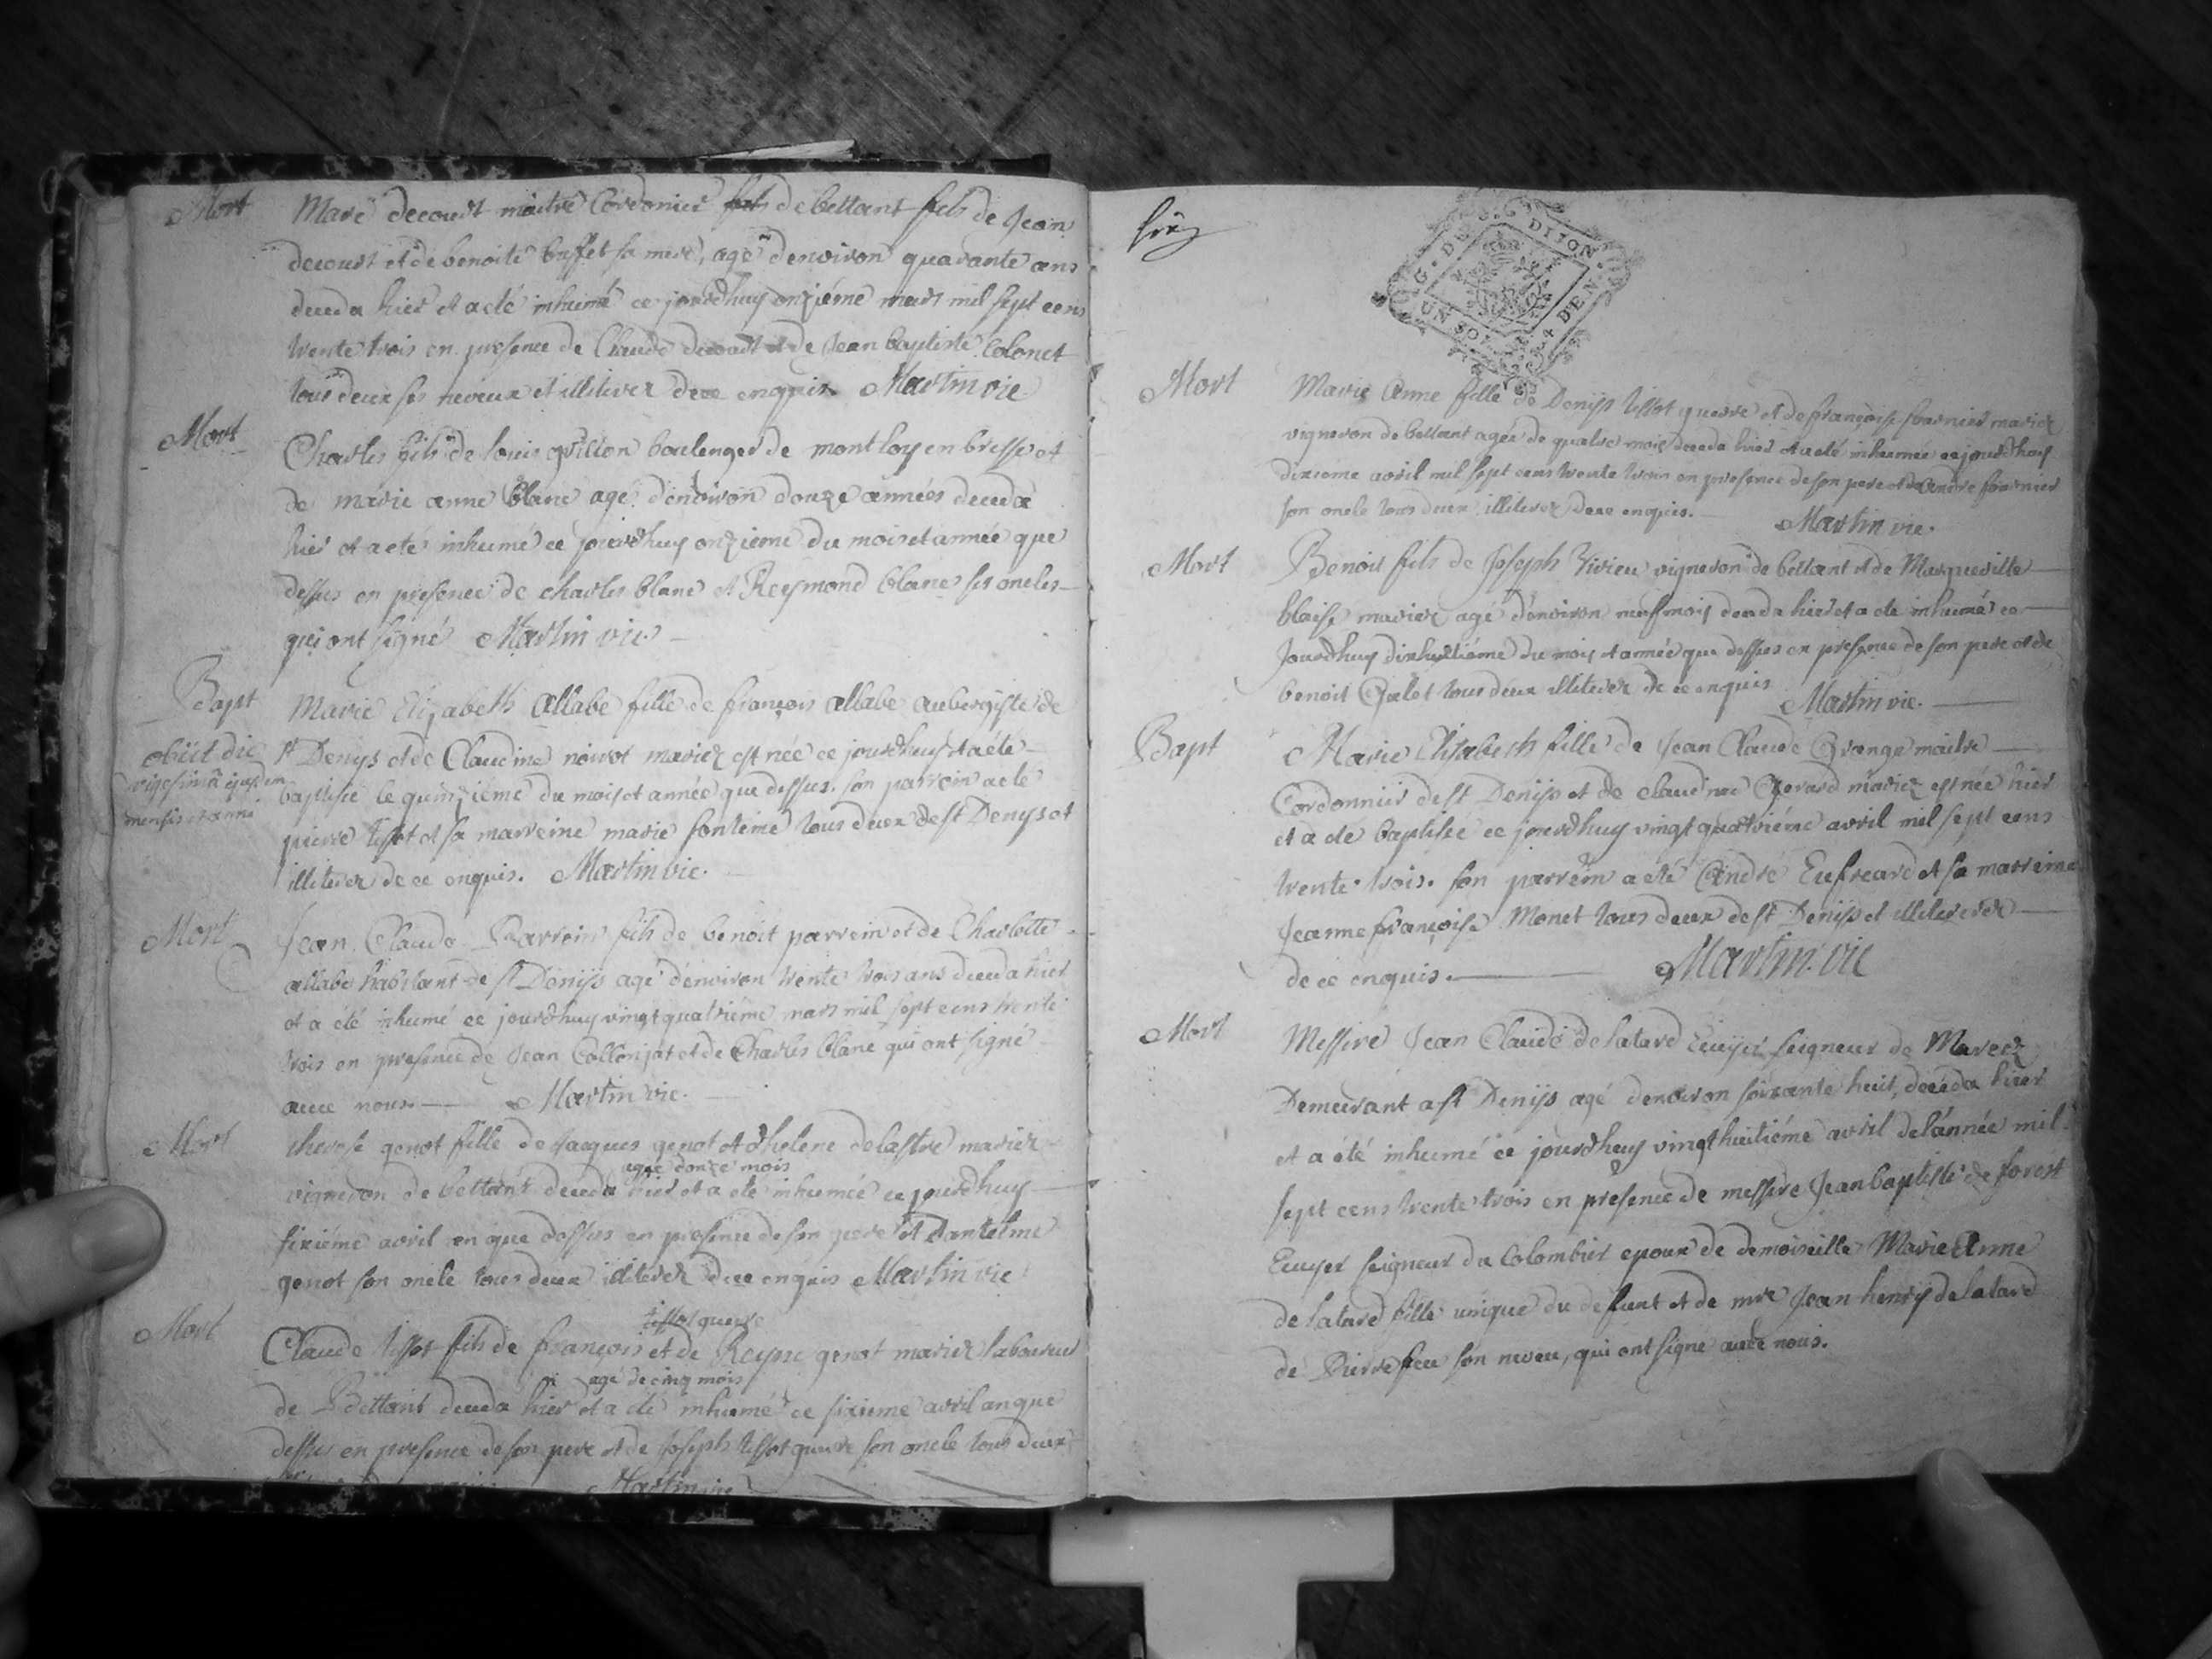 Mort
Marc decourt maitre Cordonier de bettant fils de Jean
decourt et de benoite buffet sa mere, agé d'environ quarante ans
deceda hier et a eté inhumé ce jourdhuy onziéme mars mil sept cens
trente trois en presence de Claude decourt et de Jean baptiste Colonet
tous deux ses neveux et illiterez de ce enquis Martin vic
Mort
Charles fils de louis boulenger de montloy en bresse et
de marie anne blanc agé d'environ douze années deceda
hier et a eté inhumé ce jourdhuy onzieme du mois et année que
dessus en presence de charles blanc et Reymond blanc ses oncles
qui ont signé Martin vic.
Bapt
obiit die
vigesimâ ejusdem
mensis et anni
Marie Elizabeth allabe fille de françois allabe aubergiste de
st Denys et de Claudine marier est née ce jourdhuy et a eté
baptisée le quinziéme du mois et année que dessus. son parrein a eté
pierre tissot et sa marreine marie fonteme tous deux de st Denys et
illiterez de ce enquis. Martin vic.
Mort
Jean Claude Parrein fils de benoit parrein et de Charlotte
allabe habitant de st Denys agé d'environ trente trois ans deceda hier
et a été inhumé ce jourdhuy vingt quatrieme mars mil sept cens trente
trois en presence de Jean Collonjat et de Charles blanc qui ont signé
avec nous. Martin vic.
Mort
therese genot fille de Jacques genot et d'helene delastre mariez
agée donze mois
vigneron de bettant deceda hier et a eté inhumée ce jourdhuy
sixiéme avril an que dessus en presence de son pere et Dantelme
genot son oncle tous deux illiterez de ce enquis Martin vic
Mort
tissot guerre
Claude tissot fils de françois et de Reyne genot mariez laboureur
agé de cinq mois
de Bettant deceda hier et a eté inhumé ce sixieme avril an que
dessus en presence de son pere et de Joseph tissot guerre son oncle tous deux
Martin vic
G. DE DIJON
UN SOL 4 DEN.
Mort
Marie Anne fille de Denys tissot guerre et de françoise fournier mariez
vigneron de bettant agée de quatre mois deceda hier et a eté inhumée ce jourdhuy
dixieme avril mil sept cens trente trois en presence de son pere et de andre fournier
son oncle tous deux illiterez de ce enquis.
Martin vic.
Mort
Benoit fils de Joseph Vivieu vigneron de bettant et de Marguerille
blaise mariez agé d'environ neuf mois deceda hier et a eté inhumé ce
Jourdhuy dixhuitiéme du mois et année que dessus en presence de son pere et de
benoit Galet tous deux illiterez de ce enquis
Martin vic.
Bapt
Marie Elisabeth fille de Jean Claude Grange maitre
Cordonnier de st Denys et de claudine Gerard mariez est née hier
et a eté baptisée ce jourdhuy vingt quatriéme avril mil sept cens
trente trois. son parrein a eté André Eufreard et sa marreine
Jeanne françoise Monet tous deux de st Denys et illiterez
de ce enquis.
Martin vic
Mort
Messire Jean Claude de latard Ecuyer seigneur de Marerz
Demeurant a st Denys agé denviron soixante huit, deceda hier
et a été inhumé ce jourdhuy vingt huitiéme avril de l'année mil
sept cens trente trois en presence de messire Jean baptiste de forest
Ecuyer seigneur du Colombier epoux de demoiselle Marie Anne
de latard fille unique du defunt et de mre Jean henry de latard
de Pierrefeu son neveu, qui ont signé avec nous.